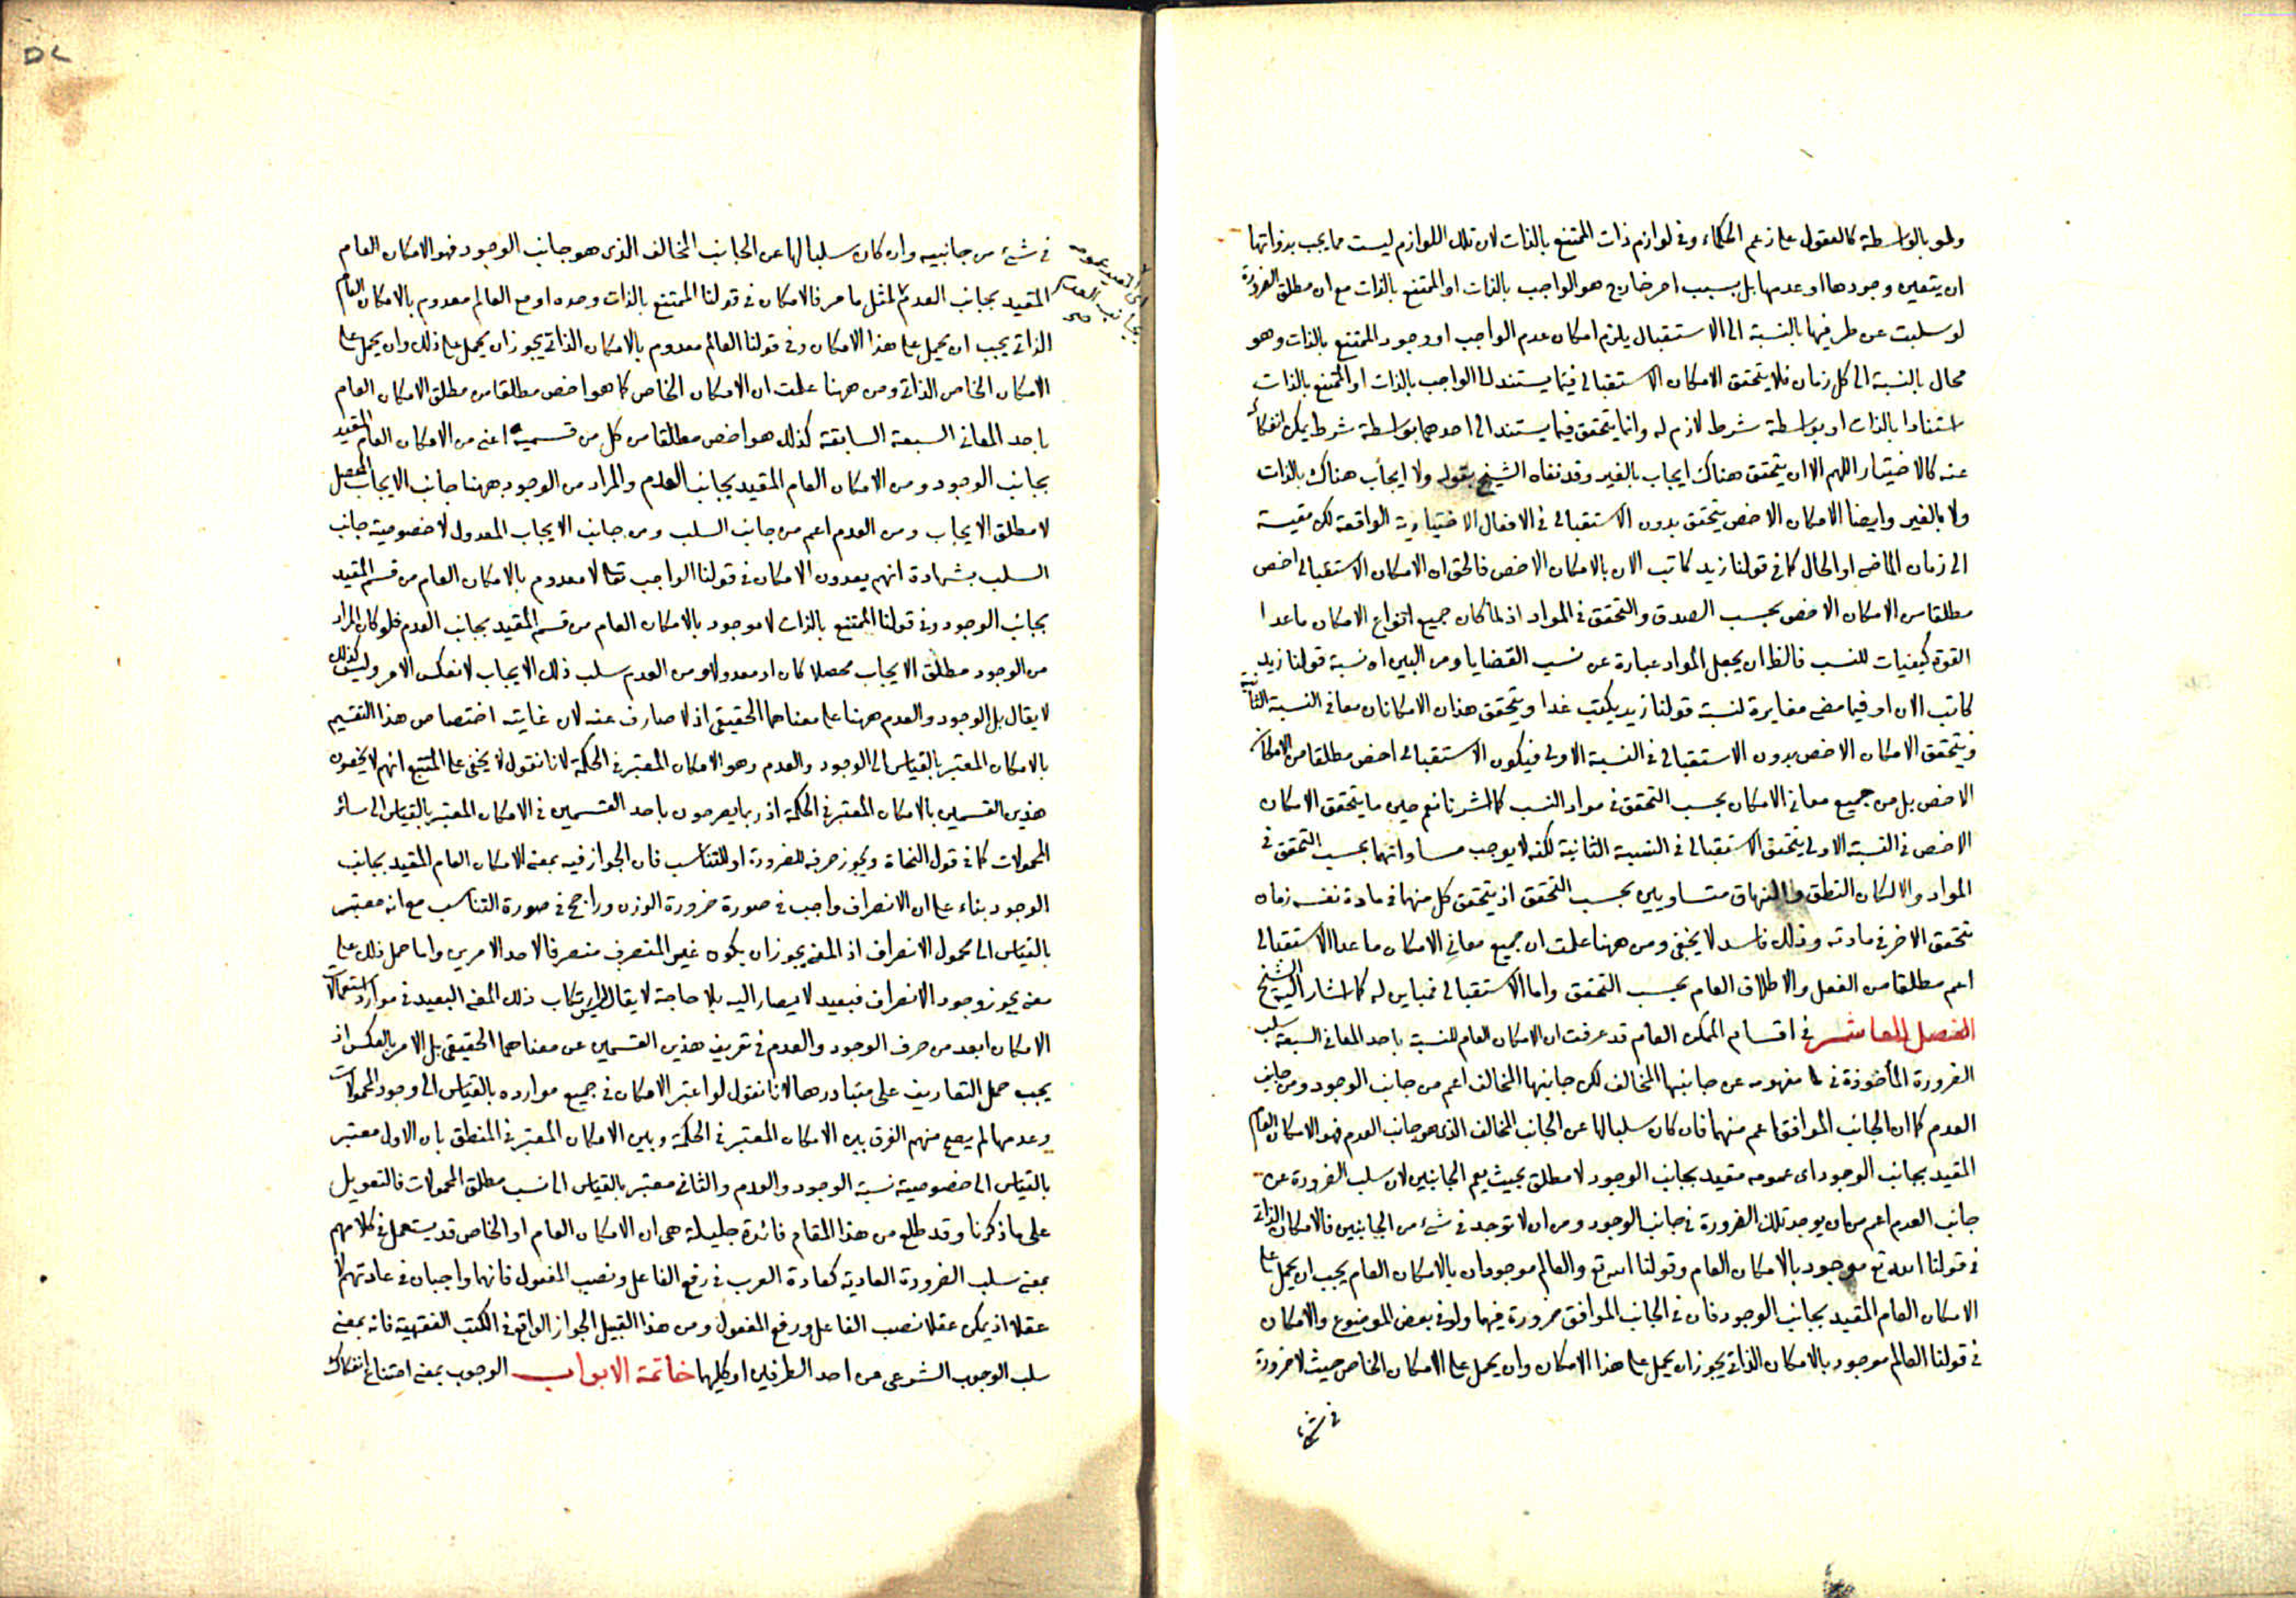 ولو بالواسطة كالعقول على زعم الحكماء وفى لوازم ذات الممتنع بالذات لان تلك اللوازم ليست مما يجب بذواتها
ان يتعين وجودها او عدمها بل بسبب امر خارج هو الواجب بالذات او الممتنع بالذات مع ان مطلق الضرورة
لو سلبت عن طرفيها بالنسبة الى الاستقبال يلزم امكان عدم الواجب او وجود الممتنع بالذات وهو
محال بالنسبة الى كل زمان فلا يتحقق الامكان الاستقبالى فيما يستند الى الواجب بالذات او الممتنع بالذات
استنادا بالذات او بواسطة شرط لازم له وانما يتحقق فيما يستند الى احدهما بواسطة شرط يمكن انفكاكه
عنه كالاختيار اللهم الا ان يتحقق هناك ايجاب بالغير وقد نفاه الشيخ بقوله ولا ايجاب هناك بالذات
ولا بالغير وايضا الامكان الاخص يتحقق بدون الاستقبالى فى الافعال الاختيارية الواقعة لكن مقيسة
الى زمان الماضى او الحال كما فى قولنا زيد كاتب الان بالامكان الاخص فالحق ان الامكان الاستقبالى اخص
مطلقا من الامكان الاخص بحسب الصدق والتحقق فى المواد اذ لما كان جميع انواع الامكان ما عدا
القوة كيفيات للنسب فالظ ان يجعل المواد عبارة عن نسب القضايا ومن البين ان نسبة قولنا زيد
كاتب الان او فيما مضى مغايرة لنسبة قولنا زيد يكتب غدا ويتحقق هذان الامكانان معا فى النسبة الثانية
ويتحقق الامكان الاخص بدون الاستقبالى فى النسبة الاولى فيكون الاستقبالى اخص مطلقا من الامكان
الاخص بل من جميع معانى الامكان بحسب التحقق فى مواد النسب كما اشرنا نعم حين ما يتحقق الامكان
الاخص فى النسبة الاولى يتحقق الاستقبالى فى النسبة الثانية لكنه لا يوجب مساواتهما بحسب التحقق فى
المواد والا لكان النطق والنهاق متساويين بحسب التحقق اذ يتحقق كل منهما فى مادة نفسه زمان
تحقق الاخر فى مادته وذلك فاسد لا يخفى ومن ههنا علمت ان جميع معانى الامكان ما عدا الاستقبالى
اعم مطلقا من الفعل والاطلاق العام بحسب التحقق واما الاستقبالى فمباين له كما اشار اليه الشيخ
الفصل العاشر فى اقسام الممكن العام قد عرفت ان الامكان العام للنسبة باحد المعانى السبعة سلب
الضرورة المأخوذة فى مفهومه عن جانبها المخالف لكن جانبها المخالف اعم من جانب الوجود ومن جانب
العدم كما ان الجانب الموافق اعم منهما فان كان سلبا لها عن الجانب المخالف الذى هو جانب العدم فهو الامكان العام
المقيد بجانب الوجود اى عمومه مقيد بجانب الوجود لا مطلق بحيث يعم الجانبين لان سلب الضرورة عن
جانب العدم اعم من ان يوجد تلك الضرورة فى جانب الوجود ومن ان لا توجد فى شئ من الجانبين فالامكان الذاتى
فى قولنا الله تع موجود بالامكان العام وقولنا الله تع والعالم موجودان بالامكان العام يجب ان يحمل على
الامكان العام المقيد بجانب الوجود فان فى الجانب الموافق ضرورة فيهما ولو فى بعض الموضوع والامكان
فى قولنا العالم موجود بالامكان الذاتى يجوز ان يحمل على هذا الامكان وان يحمل على الامكان الخاص حيث لا ضرورة
فى شئ
فى شئ من جانبيه وان كان سلبا لها عن الجانب المخالف الذى هو جانب الوجود فهو الامكان العام
المقيد بجانب العدم لمثل ما مر فالامكان فى قولنا الممتنع بالذات وحده او مع العالم معدوم بالامكان العام
اى المقيد عمومه
بجانب العدم
صح
الذاتى يجب ان يحمل على هذا الامكان وفى قولنا العالم معدوم بالامكان الذاتى يجوز ان يحمل على ذلك وان يحمل على
الامكان الخاص الذاتى ومن ههنا علمت ان الامكان الخاص كما هو اخص مطلقا من مطلق الامكان العام
باحد المعانى السبعة السابقة كذلك هو اخص مطلقا من كل من قسميه اعنى من الامكان العام المقيد
بجانب الوجود ومن الامكان العام المقيد بجانب العدم والمراد من الوجود ههنا جانب الايجاب المحصل
لا مطلق الايجاب ومن العدم اعم من جانب السلب ومن جانب الايجاب المعدول لا خصوصية جانب
السلب بشهادة انهم يعدون الامكان فى قولنا الواجب تعالى لا معدوم بالامكان العام من قسم المقيد
بجانب الوجود وفى قولنا الممتنع بالذات لا موجود بالامكان العام من قسم المقيد بجانب العدم فلو كان المراد
من الوجود مطلق الايجاب محصلا كان او معدولا ومن العدم سلب ذلك الايجاب لانعكس الامر وليس كذلك
لا يقال بل الوجود والعدم ههنا على معناهما الحقيقى اذ لا صارف عنه لان غايته اختصاص هذا التقسيم
بالامكان المعتبر بالقياس الى الوجود والعدم وهو الامكان المعتبر فى الحكمة لانا نقول لا يخفى على المتتبع انهم لا يخصون
هذين القسمين بالامكان المعتبر فى الحكمة اذ ربما يصرحون باحد القسمين فى الامكان المعتبر بالقياس الى سائر
المحمولات كما فى قول النحاة ويجوز صرفه للضرورة او للتناسب فان الجواز فيه بمعنى الامكان العام المقيد بجانب
الوجود بناء على ان الانصراف واجب فى صورة ضرورة الوزن وراجح فى صورة التناسب مع انه معتبر
بالقياس الى محمول الانصراف اذ المعنى يجوز ان يكون غير المنصرف منصرفا لاحد الامرين واما حمل ذلك على
معنى يجوز وجود الانصراف فبعيد لا يصار اليه بلا حاجة لا يقال ليس ارتكاب ذلك المعنى البعيد فى موارد استعمالات
الامكان ابعد من صرف الوجود والعدم فى تعريف هذين القسمين عن معناهما الحقيقى بل الامر بالعكس اذ
يجب حمل التعاريف على متبادرها لانا نقول لو اعتبر الامكان فى جميع موارده بالقياس الى وجود المحمولات
وعدمها لم يصح منهم الفرق بين الامكان المعتبر فى الحكمة وبين الامكان المعتبر فى المنطق بان الاول معتبر
بالقياس الى خصوصية نسبة الوجود والعدم والثانى معتبر بالقياس الى نسب مطلق المحمولات فالتعويل
على ما ذكرنا وقد طلع من هذا المقام فائدة جليلة هى ان الامكان العام او الخاص قد يستعمل فى كلامهم
بمعنى سلب الضرورة العادية كعادة العرب فى رفع الفاعل ونصب المفعول فانهما واجبان فى عادتهم لا
عقلا اذ يمكن عقلا نصب الفاعل ورفع المفعول ومن هذا القبيل الجواز الواقع فى الكتب الفقهية فانه بمعنى
سلب الوجوب الشرعى من احد الطرفين او كليهما خاتمة الابواب الوجوب بمعنى امتناع انفكاك